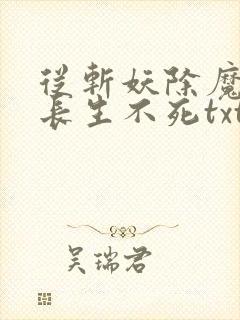 從斬妖除魔
長生不死txt
吴瑞君